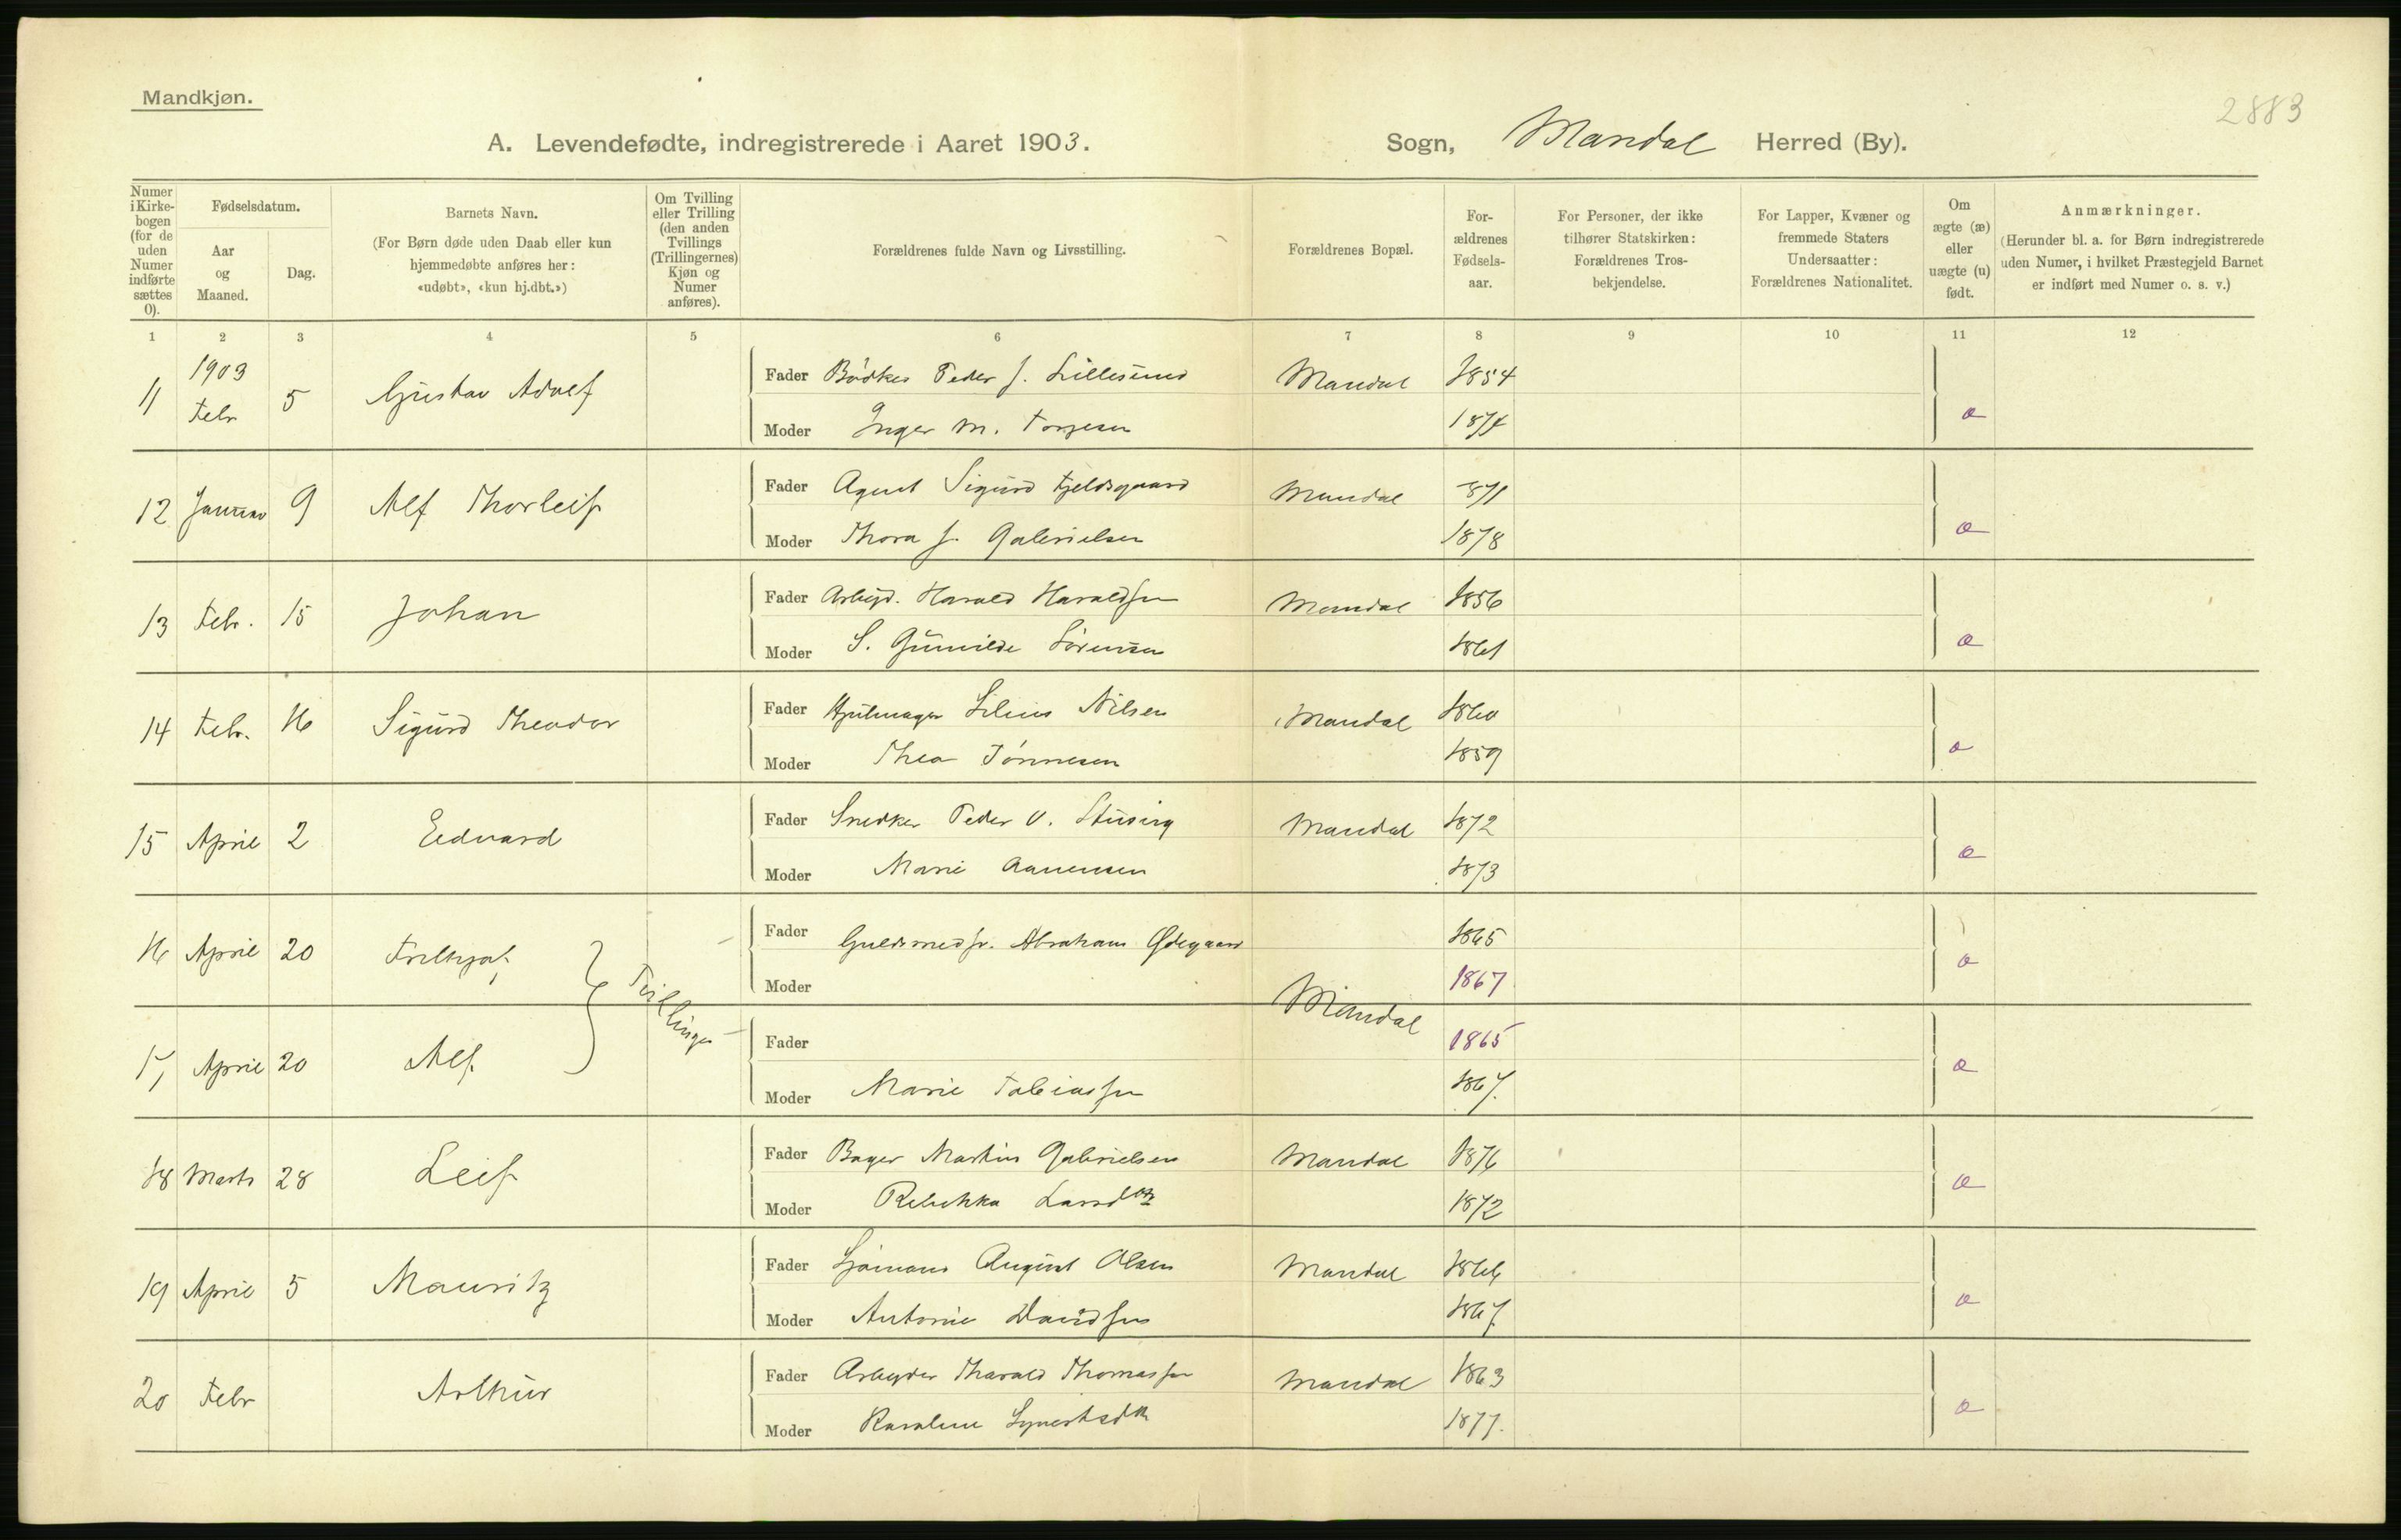 Mandkjøn.
2883
A. Levendefødte, indregistrerede i Aaret 1903. Sogn, Mandal Herred (By).
Numer i Kirkebogen (for de uden Numer indførte sættes 0).
Fødselsdatum.
Aar og Maaned.
Dag.
Barnets Navn.
(For Børn døde uden Daab eller kun hjemmedøbte anføres her: «udøbt», «kun hj.dbt.»)
Om Tvilling eller Trilling (den anden Tvillings (Trillingernes) Kjøn og Numer anføres).
Forældrenes fulde Navn og Livsstilling.
Forældrenes Bopæl.
For-ældrenes Fødsels-aar.
For Personer, der ikke tilhører Statskirken: Forældrenes Tros-bekjendelse.
For Lapper, Kvæner og fremmede Staters Undersaatter: Forældrenes Nationalitet.
Om ægte (æ) eller uægte (u) født.
Anmærkninger.
(Herunder bl. a. for Børn indregistrerede uden Numer, i hvilket Præstegjeld Barnet er indført med Numer o. s. v.)
1 2 3 4 5 6 7 8 9 10 11 12
11 1903 Febr 5 Gustav Adolf Fader Bødker Peder J. Lillesund Mandal 1854
Moder Inger M. Torjesen 1874 æ
12 Januar 9 Alf Thorleif Fader Agent Sigurd Fjeldsgaard Mandal 871
Moder Thora J. Gabrielsen 1878 æ
13 Febr. 15 Johan Fader Arbeid. Harald Haraldsen Mandal 1856
Moder S. Gunvilde Sørensen 1861 æ
14 Febr. 16 Sigurd Theodor Fader Hjulmager Silius Nilsen Mandal 1860
Moder Thea Tønnesen 1859 æ
15 April 2 Edvard Fader Snedker Peder O. Mandal 1872
Moder Marie Aanensen 1873 æ
16 April 20 Tvillinger Fader Guldsmedsv. Abraham Ødegaard 1865
Moder 1867 æ
Mandal
17 April 20 Alf. Fader 1865
Moder Marie Tobiassen 1867. æ
18 Marts 28 Leif Fader Bager Martin Gabrielsen Mandal 1876
Moder Rebekka Larsdtr 1872 æ
19 April 5 Mauritz Fader Sjømand August Olsen Mandal 1866
Moder Antonie Davidsen 1867 æ
20 Febr Arthur Fader Arbeyder Tharald Thomassen Mandal 1863
Moder 1877. æ